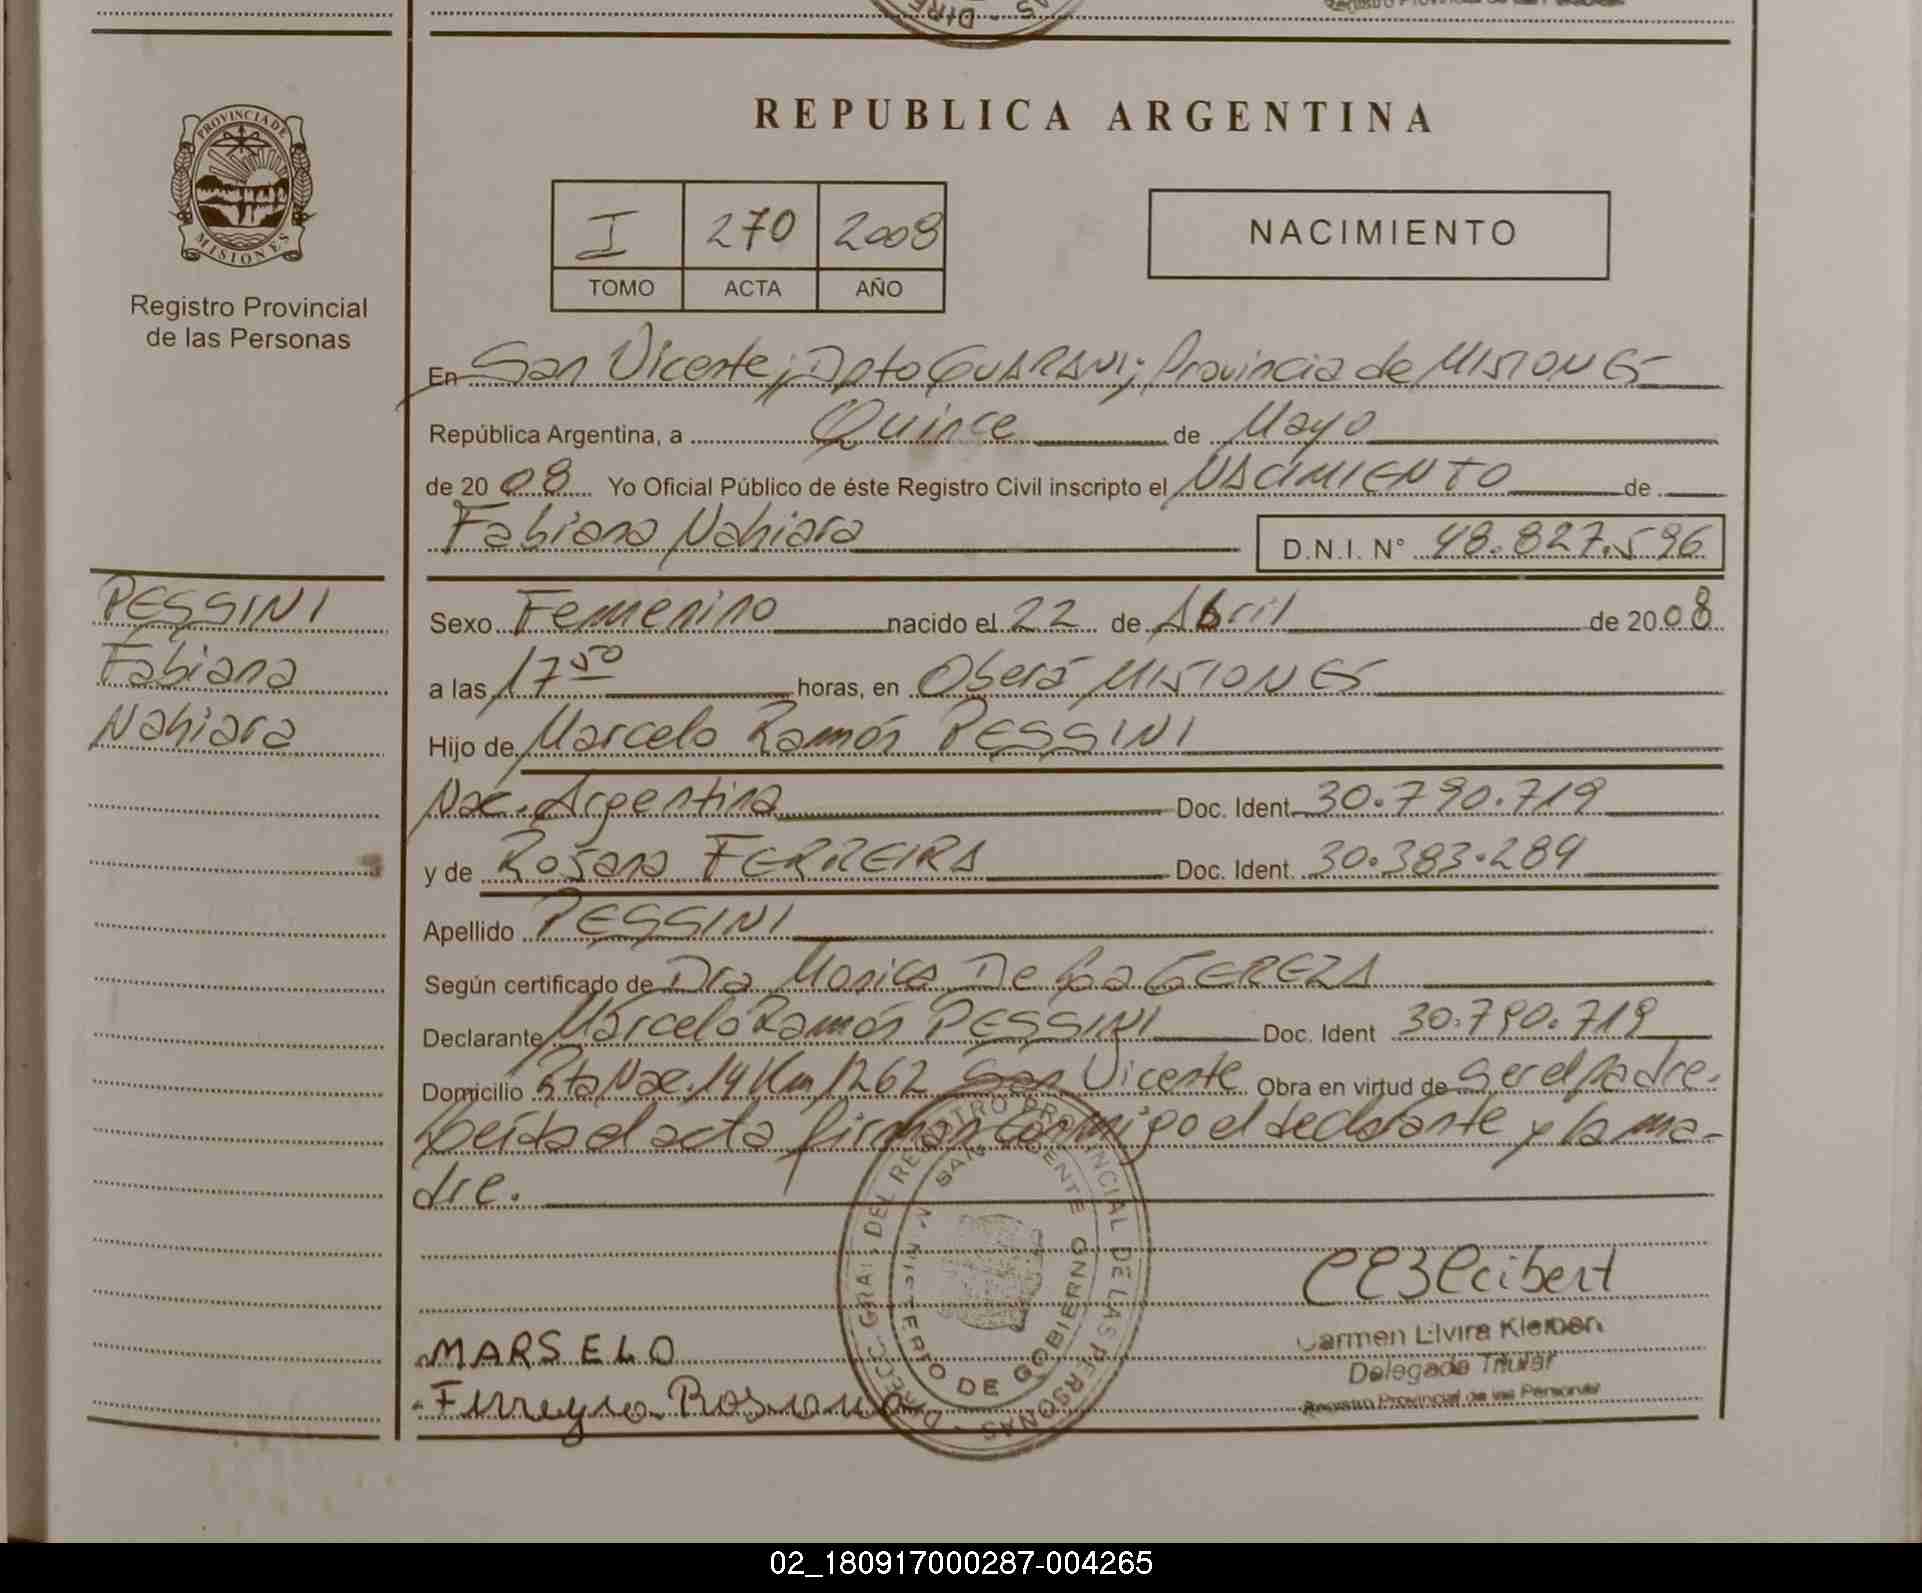 REPUBLICA ARGENTINA
PROVINCIA DE
MISIONES
Registro Provincial
de las Personas
I 270 2008
TOMO ACTA AÑO
NACIMIENTO
En San Vicente; Dpto GUARANI; Provincia de MISIONES
República Argentina, a Quince de Mayo
de 2008 Yo Oficial Público de éste Registro Civil inscripto el NACIMIENTO de
Fabiana Nahiara D.N.I. N° 48.827.596
PESSINI
Fabiana
Nahiara
Sexo Femenino nacido el 22 de Abril de 2008
a las 17 50 horas, en Oberá MISIONES
Hijo de Marcelo Ramón PESSINI
Nac. Argentina Doc. Ident. 30.790.719
y de Rosana FERREIRA Doc. Ident. 30.383.289
Apellido PESSINI
Según certificado de Dra Monica De La GEREZA
Declarante Marcelo Ramón PESSINI Doc. Ident 30.790.719
Domicilio Rta Nac. 14 Km 1262 San Vicente Obra en virtud de ser el padre.
Leída el acta firman conmigo el declarante y la ma-
dre.
DIRECC. GRAL DEL REGISTRO PROVINCIAL DE LAS PERSONAS
SAN VICENTE
MINISTERIO DE GOBIERNO
MARSELO
Ferreyra Rosana
Carmen Elvira Kleiben
Delegada Titular
Registro Provincial de las Personas
02_180917000287-004265